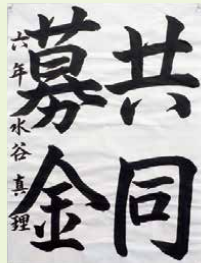 共同
募金
六年水谷真理